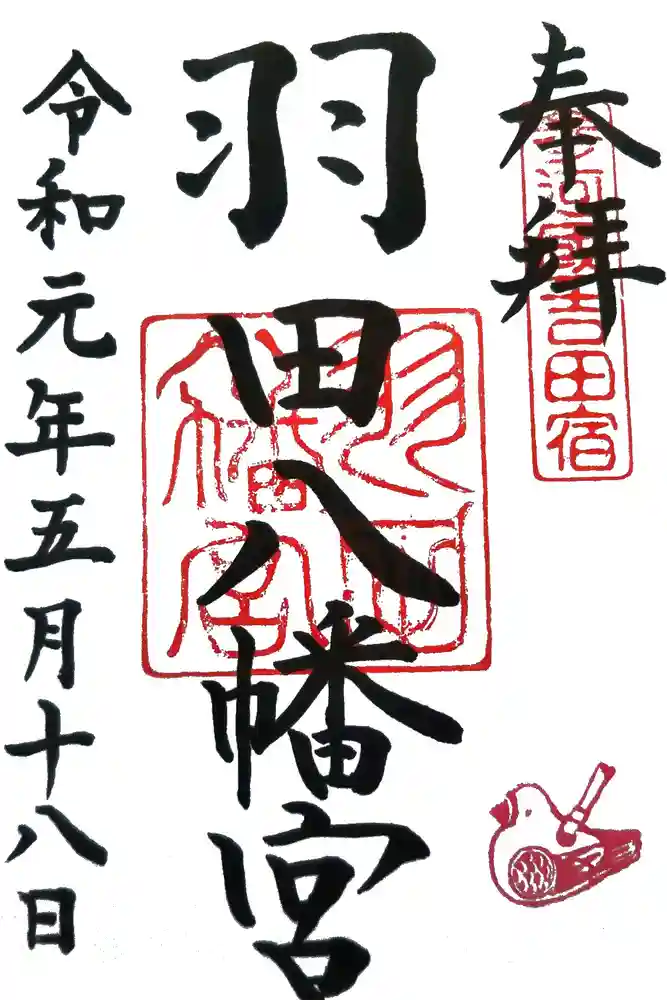 奉拝
参河国吉田宿
羽田八幡宮
羽田八幡宮
令和元年五月十八日